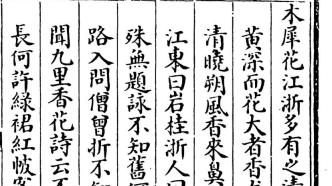 木犀花江浙多有之清
黃深而花大者香
清曉朔風香來鼻
江東曰岩桂浙人曰
殊無題詠不知舊
路入問僧曾折不知
聞九里香花詩云不
長何許綠裙紅帔客